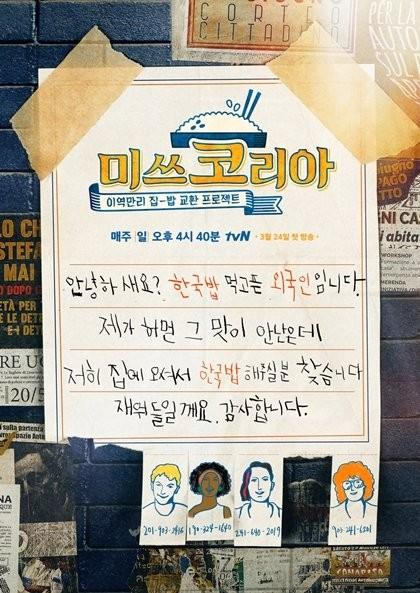 CORTEO
CITTADINO
PER LA
미쓰코리아
이역만리 집-밥 교환 프로젝트
매주 일 오후 4시 40분 tvN · 3월 24일 첫 방송 ·
안녕하세요? 한국밥 먹고픈 외국인입니다.
제가 하면 그 맛이 안난은데
저희 집에 오셔서 한국밥 해주실분 찾습니다
재워 들일게요. 감사합니다.
MAI
WORKSHOP
20/5
190-324-1640
241-640-2019